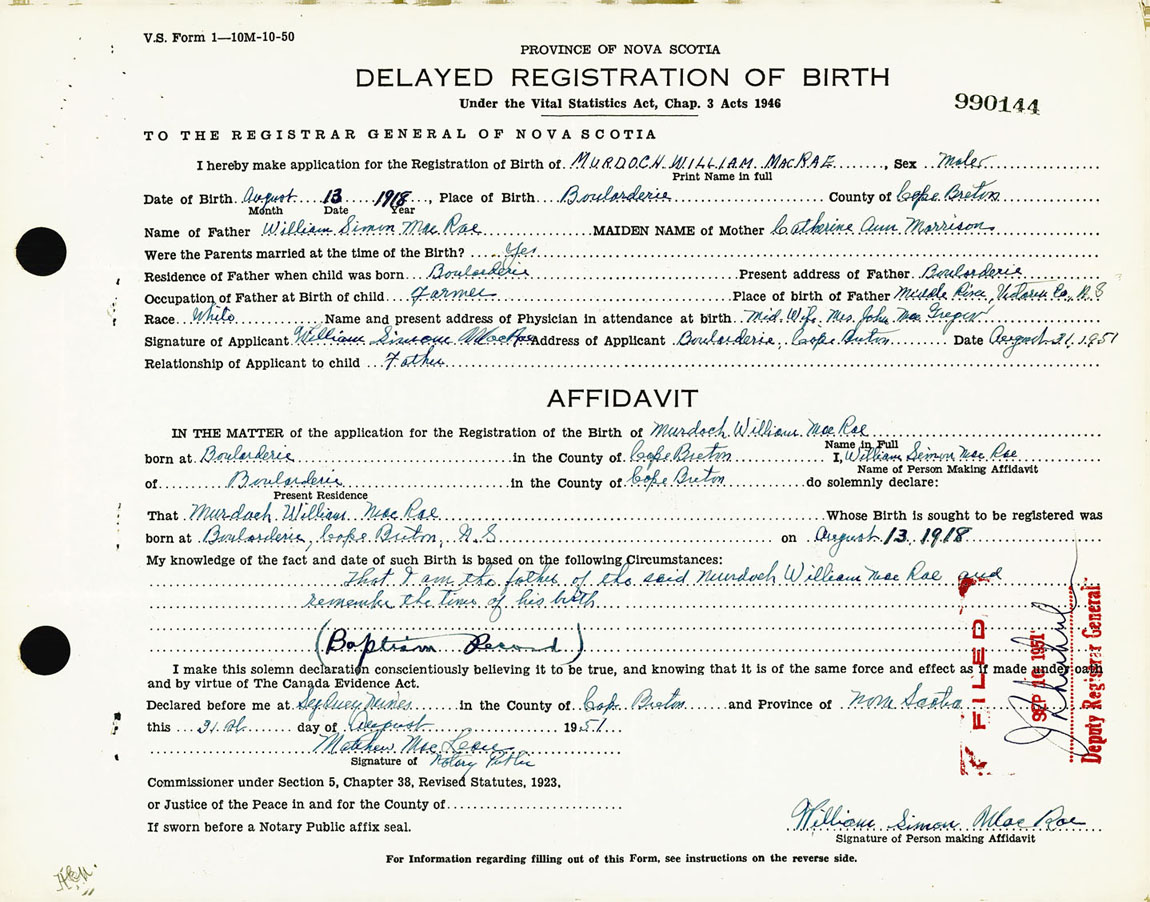 V.S. Form 1—10M-10-50
PROVINCE OF NOVA SCOTIA
DELAYED REGISTRATION OF BIRTH
Under the Vital Statistics Act, Chap. 3 Acts 1946
990144
TO THE REGISTRAR GENERAL OF NOVA SCOTIA
I hereby make application for the Registration of Birth of MURDOCH WILLIAM MACRAE, Sex Male
Print Name in full
Date of Birth August 13 1918, Place of Birth Boularderie County of Cape Breton
Month Date Year
Name of Father William Simon Mac Rae MAIDEN NAME of Mother Catherine Ann Morrison
Were the Parents married at the time of the Birth? Yes
Residence of Father when child was born Boularderie Present address of Father Boularderie
Occupation of Father at Birth of child Farmer Place of birth of Father Middle River, Victoria Co., N.S
Race White Name and present address of Physician in attendance at birth Mid. Wife Mrs. John Mac Gregor
Signature of Applicant William Simon MacRae Address of Applicant Boularderie, Cape Breton Date August 31, 1951
Relationship of Applicant to child Father
AFFIDAVIT
IN THE MATTER of the application for the Registration of the Birth of Murdoch William Mac Rae
Name in Full
born at Boularderie in the County of Cape Breton I, William Simon Mac Rae
Name of Person Making Affidavit
of Boularderie in the County of Cape Breton do solemnly declare:
Present Residence
That Murdoch William Mac Rae Whose Birth is sought to be registered was
born at Boularderie, Cape Breton, N.S on August 13, 1918
My knowledge of the fact and date of such Birth is based on the following Circumstances:
That I am the father of the said Murdoch William Mac Rae and
remember the time of his birth
(Baptism Record)
I make this solemn declaration concientiously believing it to be true, and knowing that it is of the same force and effect as if made under oath
and by virtue of The Canada Evidence Act.
Declared before me at Sydney Mines in the County of Cape Breton and Province of Nova Scotia
this 31st day of August 1951
Matthew Mac Lean
Signature of Notary Public
Commissioner under Section 5, Chapter 38, Revised Statutes, 1923,
or Justice of the Peace in and for the County of
If sworn before a Notary Public affix seal.
William Simon Mac Rae
Signature of Person making Affidavit
For Information regarding filling out of this Form, see instructions on the reverse side.
FILED
SEP 10 1951
Deputy Registrar General